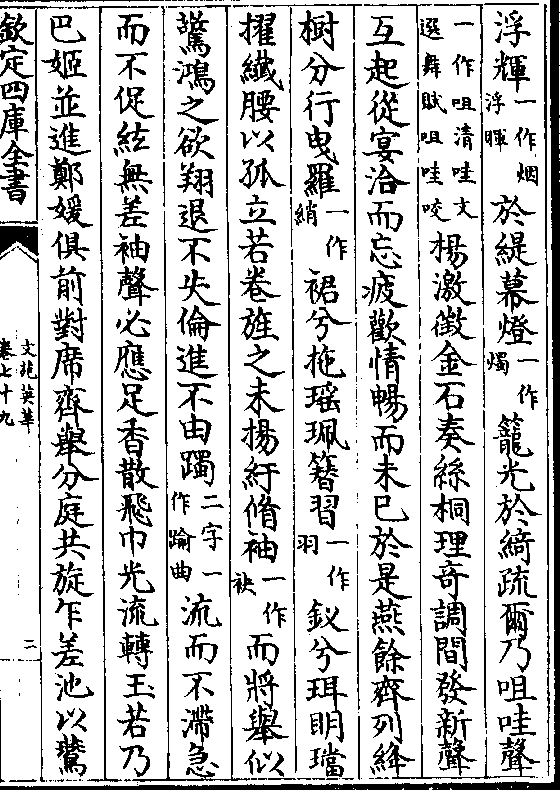 浮輝一作烟浮暉於緹幕燈一作燭籠光於綺疏爾乃咀哇聲
一作咀清哇文選舞賦咀哇咬楊激徴金石奏絲桐理奇調間發新聲
互起從宴洽而忘疲歡情暢而未已於是燕餘齊列絳
樹分行曳羅一作綃裙兮拖瑶珮簮習一作羽釵兮珥明璫
擢纎腰以孤立若卷旌之未揚紆脩袖一作袂而將舉似
驚鴻之欲翔退不失倫進不由躅二字一作踰曲流而不滯急
而不促絃無差袖聲必應足香散飛巾光流轉玉若乃
巴姬並進鄭媛俱前對席齊舉分庭共旋乍差池以鷺
欽定四庫全書
文苑英華
卷七十九
二